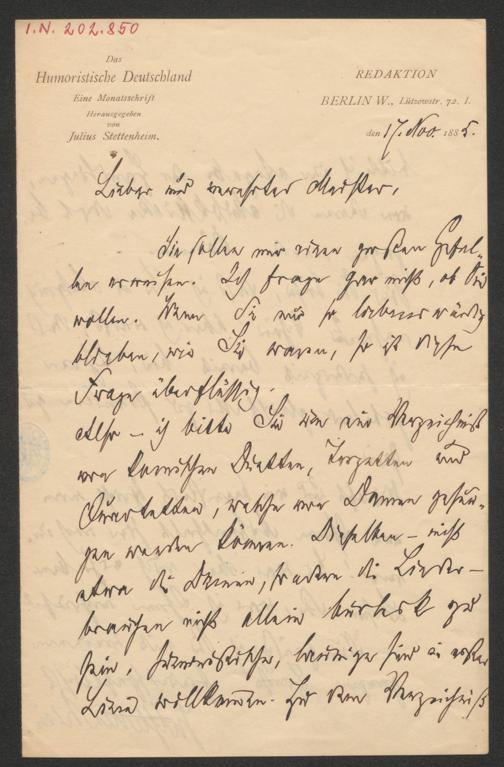 I.N. 202.850
Das
Humoristische Deutschland
Eine Monatsschrift
Herausgegeben
von
Julius Stettenheim.
REDAKTION
BERLIN W., Lützowstr. 72. I.
den 17. Nov. 1885.
Lieber und verehrter Meister,
Sie sollen mir einen großen Gefal-
len erweisen. Ich frage gar nicht, ob Sie
wollen. Wenn Sie nur so liebenswürdig
blieben, wie Sie waren, so ist diese
Frage überflüssig.
Also – ich bitte Sie um ein Verzeichniß
von komischen Duetten, Terzetten und
Quartetten, welche von Damen gesun-
gen werden können. Dieselben – nicht
etwa die Damen, sondern die Lieder –
brauchen nicht allein burlesk zu
sein, humoristische, launige sind in erster
Linie willkommen. Zu dem Verzeichniß